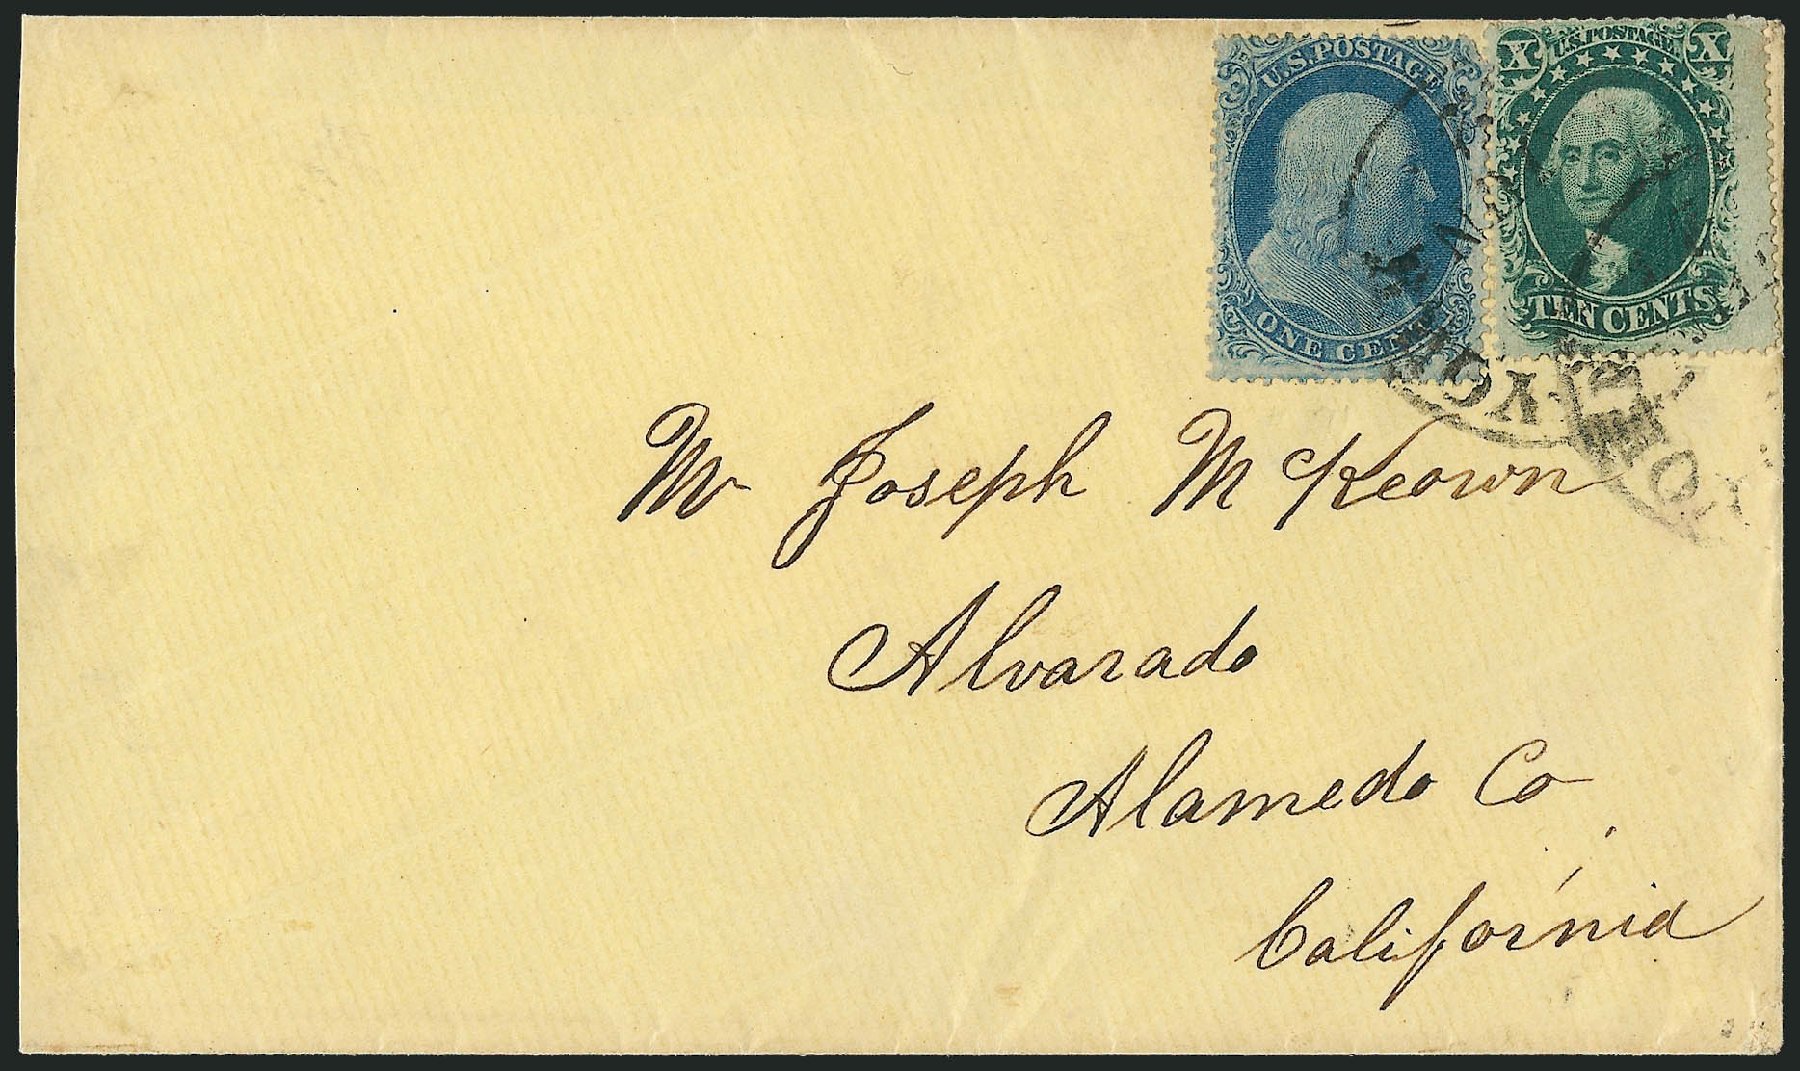 U.S. POSTAGE
ONE CENT
X U.S. POSTAGE X
TEN CENTS
YORK
Mr Joseph McKeown
Alvarado
Alamedo Co
California